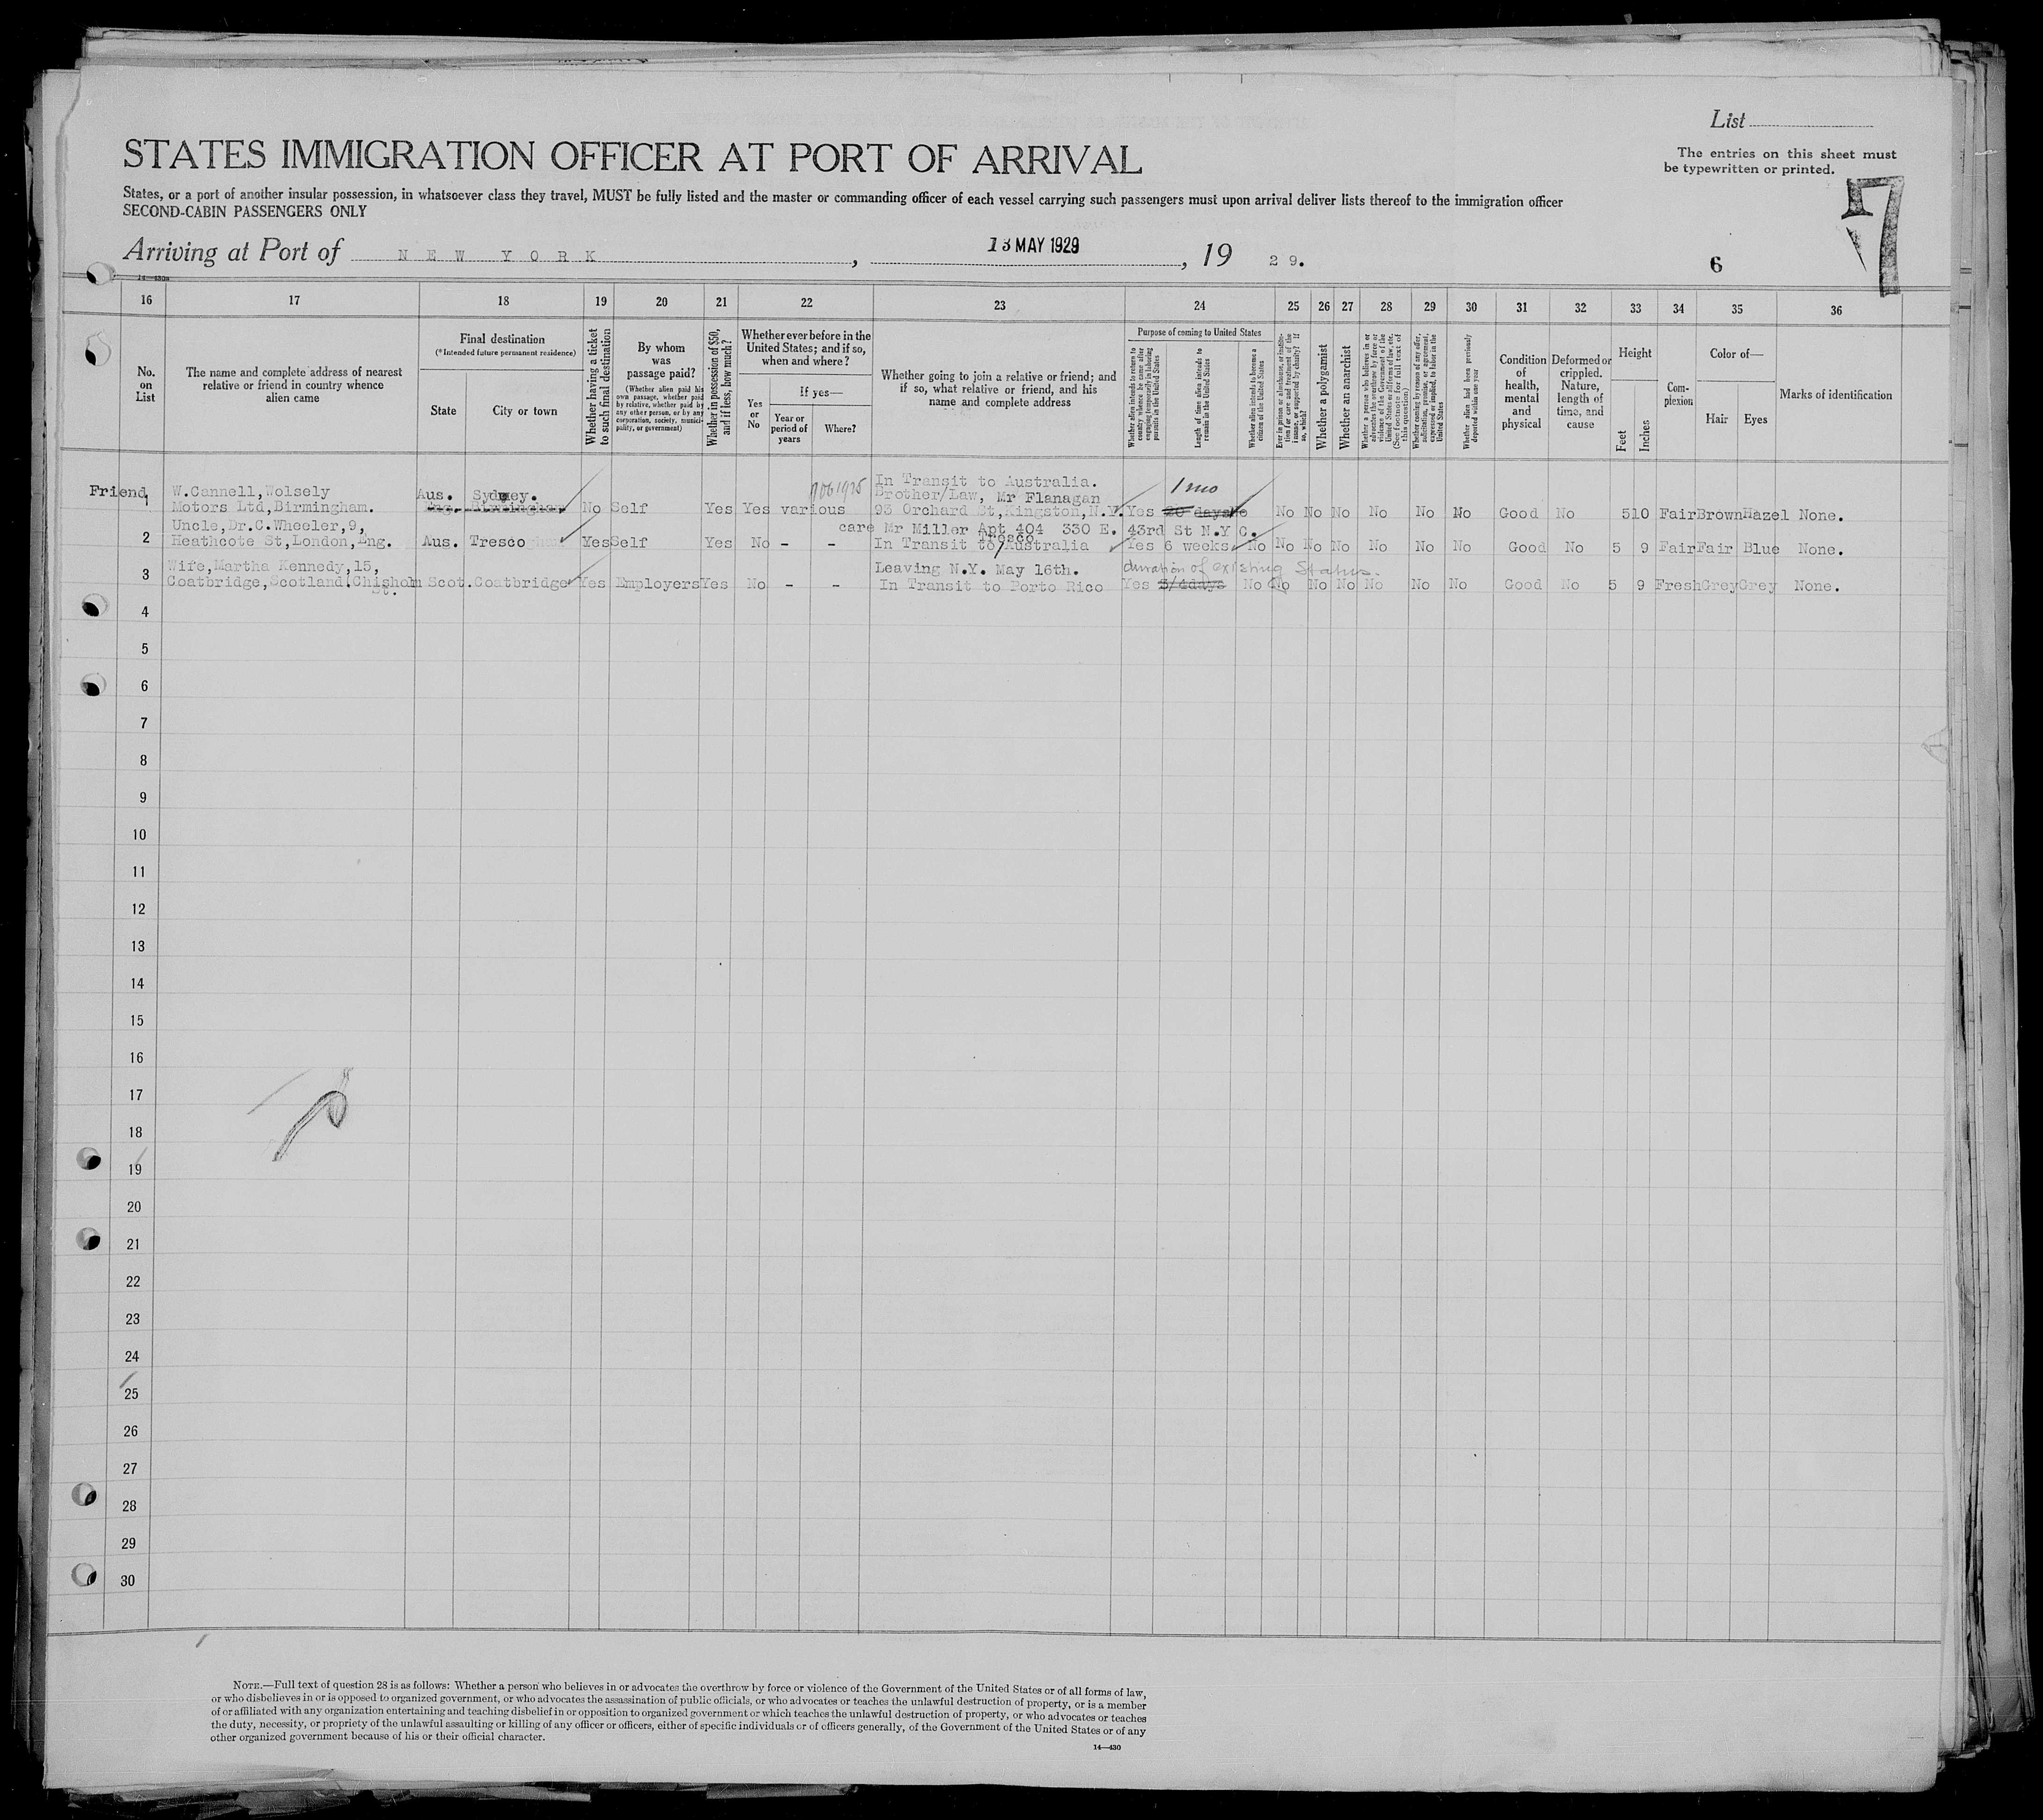 List
STATES IMMIGRATION OFFICER AT PORT OF ARRIVAL
The entries on this sheet must
be typewritten or printed.
States, or a port of another insular possession, in whatsoever class they travel, MUST be fully listed and the master or commanding officer of each vessel carrying such passengers must upon arrival deliver lists thereof to the immigration officer
SECOND-CABIN PASSENGERS ONLY
7
Arriving at Port of NEW YORK, 13 MAY 1929, 19 29.
6
16 17 18 19 20 21 22 23 24 25 26 27 28 29 30 31 32 33 34 35 36
No. on List
The name and complete address of nearest relative or friend in country whence alien came
Final destination
(*Intended future permanent residence)
State
City or town
Whether having a ticket to such final destination
By whom was passage paid?
(Whether alien paid his own passage, whether paid by relative, whether paid by any other person, or by any corporation, society, municipality, or government)
Whether in possession of $50, and if less, how much?
Whether ever before in the United States; and if so, when and where?
Yes or No
If yes—
Year or period of years
Where?
Whether going to join a relative or friend; and if so, what relative or friend, and his name and complete address
Purpose of coming to United States
Whether alien intends to return to country whence he came after engaging temporarily in laboring pursuits in the United States
Length of time alien intends to remain in the United States
Whether alien intends to become a citizen of the United States
Ever in prison or almshouse, or institution for care and treatment of the insane, or supported by charity? If so, which?
Whether a polygamist
Whether an anarchist
Whether a person who believes in or advocates the overthrow by force or violence of the Government of the United States or all forms of law, etc. (See footnote for full text of this question)
Whether coming by reason of any offer, solicitation, promise, or agreement, expressed or implied, to labor in the United States
Whether alien had been previously deported within one year
Condition of health, mental and physical
Deformed or crippled. Nature, length of time, and cause
Height
Feet
Inches
Complexion
Color of—
Hair
Eyes
Marks of identification
Friend, 1 W.Cannell,Wolsely Aus. Sydney. In Transit to Australia. 1 mo
Brother/Law, Mr Flanagan
Motors Ltd,Birmingham. Eng. Birmingham No Self Yes Yes various 93 Orchard St,Kingston,N.Y. Yes 20 days No No No No No No No Good No 5 10 Fair Brown Hazel None.
Uncle,Dr.C.Wheeler,9, care Mr Miller Apt 404 330 E. 43rd St N.Y C.
Tresco
2 Heathcote St,London,Eng. Aus. Tresco Yes Self Yes No - - In Transit to/Australia Yes 6 weeks No No No No No No No Good No 5 9 Fair Fair Blue None.
Wife,Martha Kennedy,15, Leaving N.Y. May 16th. duration of existing Status.
3 Coatbridge,Scotland.Chisholm St. Scot. Coatbridge Yes Employers Yes No - - In Transit to Porto Rico Yes 3/4days No No No No No No No Good No 5 9 Fresh Grey Grey None.
4
5
6
7
8
9
10
11
12
13
14
15
16
17
18
19
20
21
22
23
24
25
26
27
28
29
30
NOTE.—Full text of question 28 is as follows: Whether a person who believes in or advocates the overthrow by force or violence of the Government of the United States or of all forms of law,
or who disbelieves in or is opposed to organized government, or who advocates the assassination of public officials, or who advocates or teaches the unlawful destruction of property, or is a member
of or affiliated with any organization entertaining and teaching disbelief in or opposition to organized government or which teaches the unlawful destruction of property, or who advocates or teaches
the duty, necessity, or propriety of the unlawful assaulting or killing of any officer or officers, either of specific individuals or of officers generally, of the Government of the United States or of any
other organized government because of his or their official character.
14—430